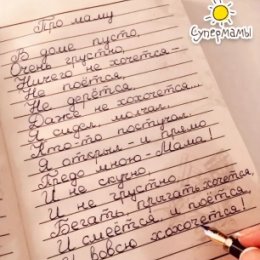 Супермамы
Про маму
В доме пусто,
Очень грустно,
Ничего не хочется –
Не поётся,
Не дерётся,
Даже не хохочется...
Я сидел, молчал,
Кто-то постучал.
Я открыл – и прямо
Предо мною – Мама!
И не скучно,
И не грустно,
Бегать, прыгать хочется,
И смеётся и поётся,
И вовсю хохочется!